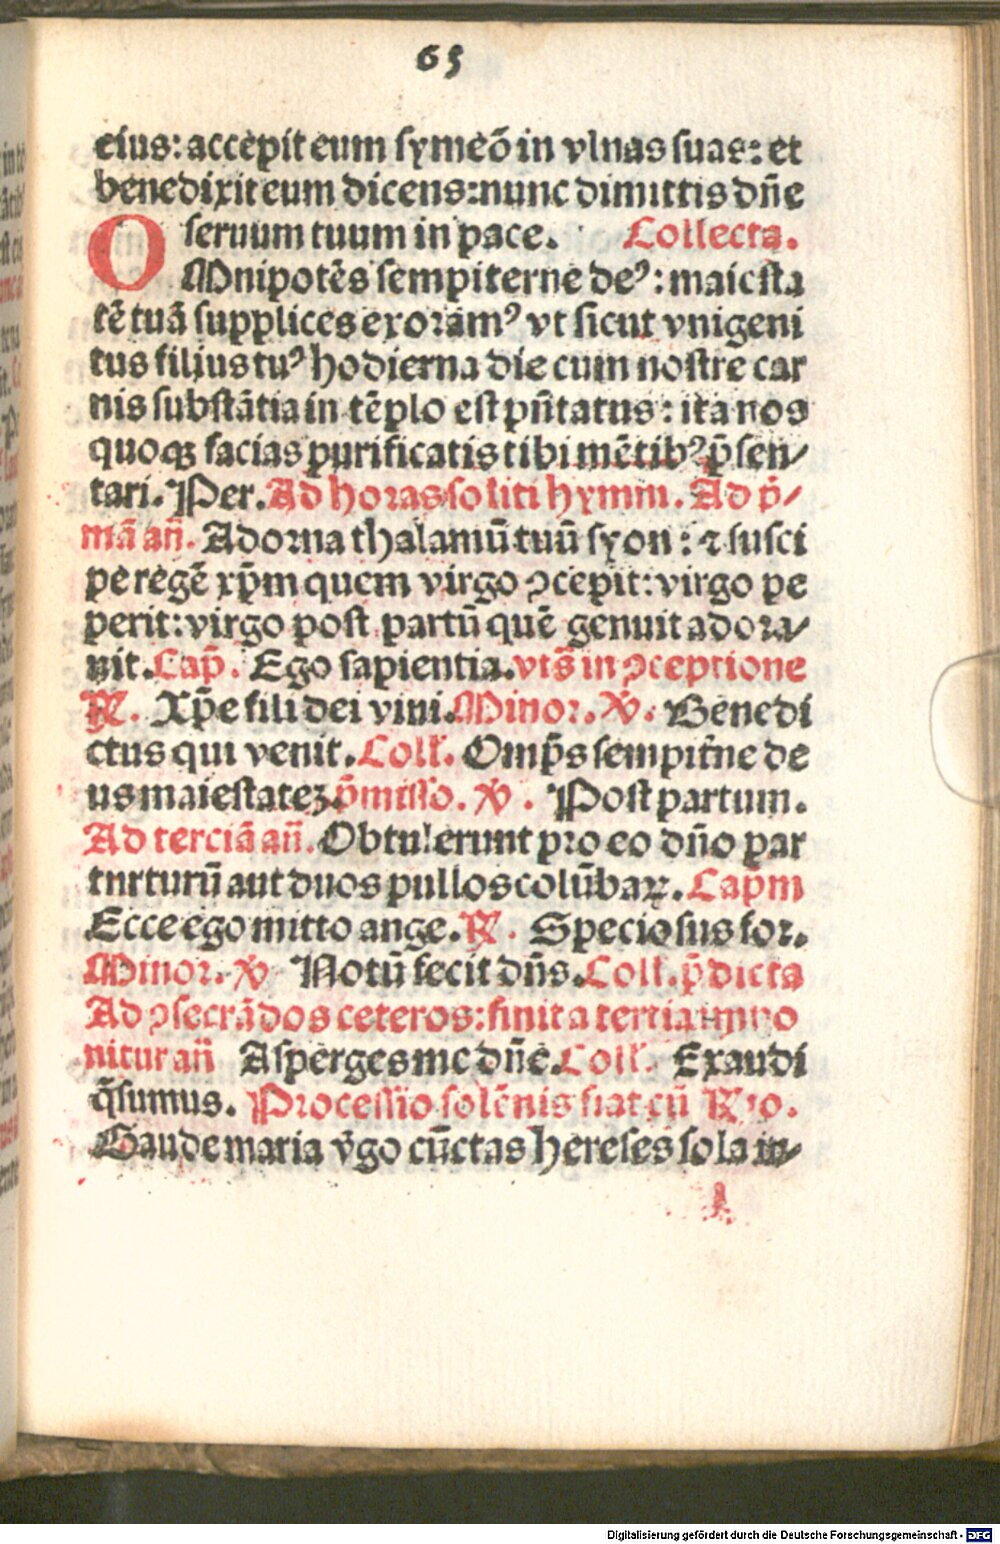 65
eius: accepit eum symeō in vlnas suas: et
benedixit eum dicens: nunc dimittis dn̄e
seruum tuum in pace. Collecta.
OMnipotēs sempiterne deꝰ: maiesta
tē tuā supplices exoramꝰ vt sicut vnigeni
tus filius tuꝰ hodierna die cum nostre car
nis substātia in tēplo est pn̄tatus: ita nos
quoqꝫ facias purificatis tibi mētibꝰ p̄sen⸗
tari. Per. Ad horas soliti hymni. Ad p̄⸗
mā an̄. Adorna thalamū tuū syon: ⁊ susci
pe regē xp̄m quem virgo ꝯcepit: virgo pe
perit: virgo post partū quē genuit adora⸗
uit. Cap̄. Ego sapientia. vts̄ in ꝯceptione
℟. Xp̄e fili dei viui. Minor. ℣. Benedi
ctus qui venit. Coll̄. Omp̄s sempit̄ne de
us maiestateꝫ. p̄misso. ℣. Post partum.
Ad terciā an̄. Obtulerunt pro eo dn̄o par
turturū aut duos pullos colūbaꝝ. Cap̄m
Ecce ego mitto ange. ℟. Speciosus for.
Minor. ℣. Notū fecit dn̄s. Coll. p̄dicta
Ad ꝯsecrādos ceteros: finita tertia impo
nitur an̄ Asperges me dn̄e. Coll̄. Exaudi
q̄sumus. Processio solēnis fiat cū ℟rio.
Gaude maria v̄go cūctas hereses sola in⸗
Digitalisierung gefördert durch die Deutsche Forschungsgemeinschaft - DFG